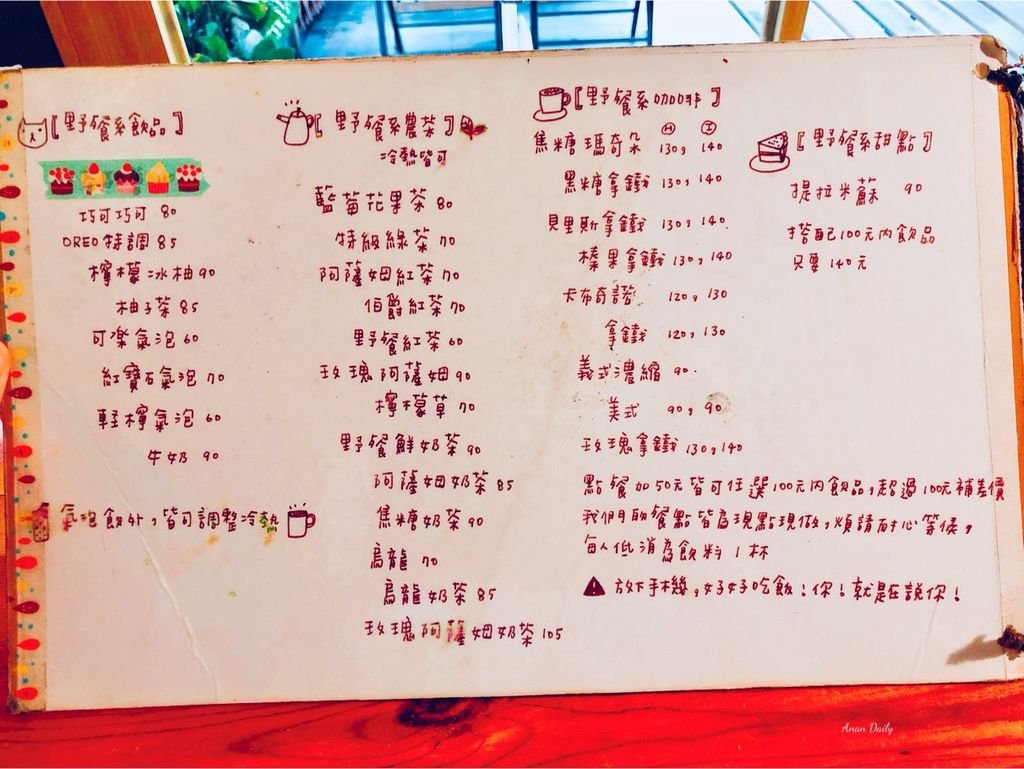 〖野餐系飲品〗
巧可巧可 80
OREO特調 85
檸檬冰柚 90
柚子茶 85
可樂氣泡 60
紅寶石氣泡 70
輕檸氣泡 60
牛奶 90
氣泡飲外，皆可調整冷熱
〖野餐系農茶〗
冷熱皆可
藍莓花果茶 80
特級綠茶 70
阿薩姆紅茶 70
伯爵紅茶 70
野餐紅茶 60
玫瑰阿薩姆 90
檸檬草 70
野餐鮮奶茶 90
阿薩姆奶茶 85
焦糖奶茶 90
烏龍 70
烏龍奶茶 85
玫瑰阿薩姆奶茶 105
〖野餐系咖啡〗
H I
焦糖瑪奇朵 130, 140
黑糖拿鐵 130, 140
貝里斯拿鐵 130, 140
榛果拿鐵 130, 140
卡布奇諾 120, 130
拿鐵 120, 130
義式濃縮 90
美式 90, 90
玫瑰拿鐵 130, 140
〖野餐系甜點〗
提拉米蘇 90
搭配100元內飲品
只要140元
點餐加50元皆可任選100元內飲品，超過100元補差價
我們的餐點皆為現點現做，煩請耐心等候，
每人低消為飲料1杯
放下手機，好好吃飯！你！就是在說你！
Anan Daily